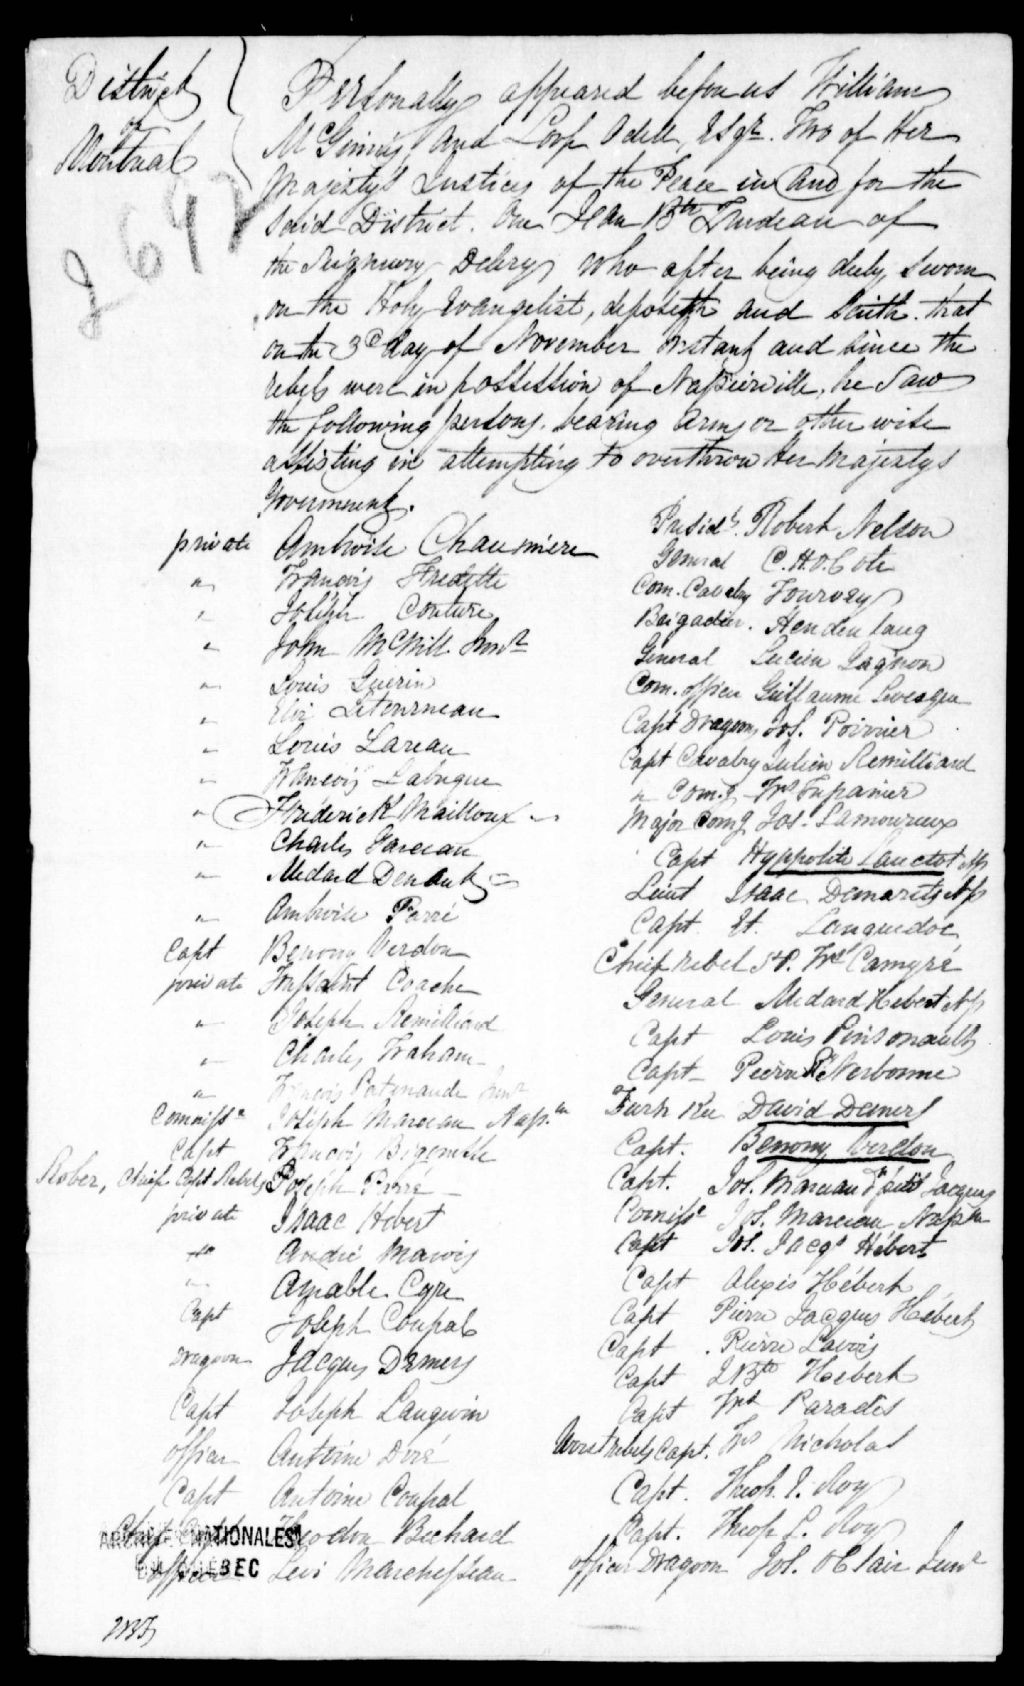 District
of
Montreal
2642
Personally appeared before us William
McGinnis, and Loop Odell, Esqr. Two of Her
Majesty's Justices of the Peace in and for the
said District. One Jean Bte Trudeau of
the Seignury Delery, who after being duly sworn
on the Holy Evangelist, deposeth and saith. that
on the 3d day of November instant and since the
rebels were in possession of Napierville, he saw
the following persons. bearing arms or other wise
assisting in attempting to overthrow Her Majestys
Government.
private Ambroise Chausniere
" François Fredette
" Joseph Couture
" John McNill Junr
" Louis Guerin
" Eloi Letourneau
" Louis Lareau
" Francois Labuque
" Frederick Mailloux
" Charles Garceau
" Medard Denault
" Ambroise Parré
Capt Benony Verdon
private Toussaint Coache
" Joseph Remilliard
" Charles Graham
" Francois Patenaude Junr
Commisse Joseph Marceau Nap.
Capt Francois Bigonesse
Rober, Chief Capt Rebels Joseph Parré
private Isaac Hebert
" André Marois
" Amable Cyre
Capt Joseph Coupal
Dragoon Jacques Demers
Capt Joseph Langevin
officer Antoine Doré
Capt Antoine Coupal
Theodore Bechard
officer Levi Marchesseau
Presidt. Robert Nelson
General C.H.O. Cote
Com. Cavalry Tourvey
Brigadier. Hendenlang
General Lucien Gagnon
Com. officer Guillaume Levesque
Capt Dragoon, Jos. Poirrier
Capt Cavalry Julien Remilliard
" Comg Frs Trepanier
Major Comg Jos. Lamoureux
Capt Hyppolite Lanctot Np
Lieut Isaac Demarets Np
Capt Et. Languedoc
Chief rebel Frs Camyré
General Medard Hebert Np
Capt Louis Pinsonault
Capt Pierre Rl Narbonne
David Demers
Capt. Benony Verdon
Capt. Jos. Marceau petit Jacques
Comisse Jos. Marceau Nap
Capt Jos. Jacqs Hébert
Capt Alexis Hébert
Capt Pierre Jacques Hébert
Capt Pierre Lavois
Capt J Bte Hebert
Capt Frs Paradis
Worst rebels Capt. Frs Nicholas
Capt. Theop. I. Roy
Capt. Theop L. Roy
officer Dragoon Jos. St Clair Junr
ARCHIVES NATIONALES
DU QUÉBEC